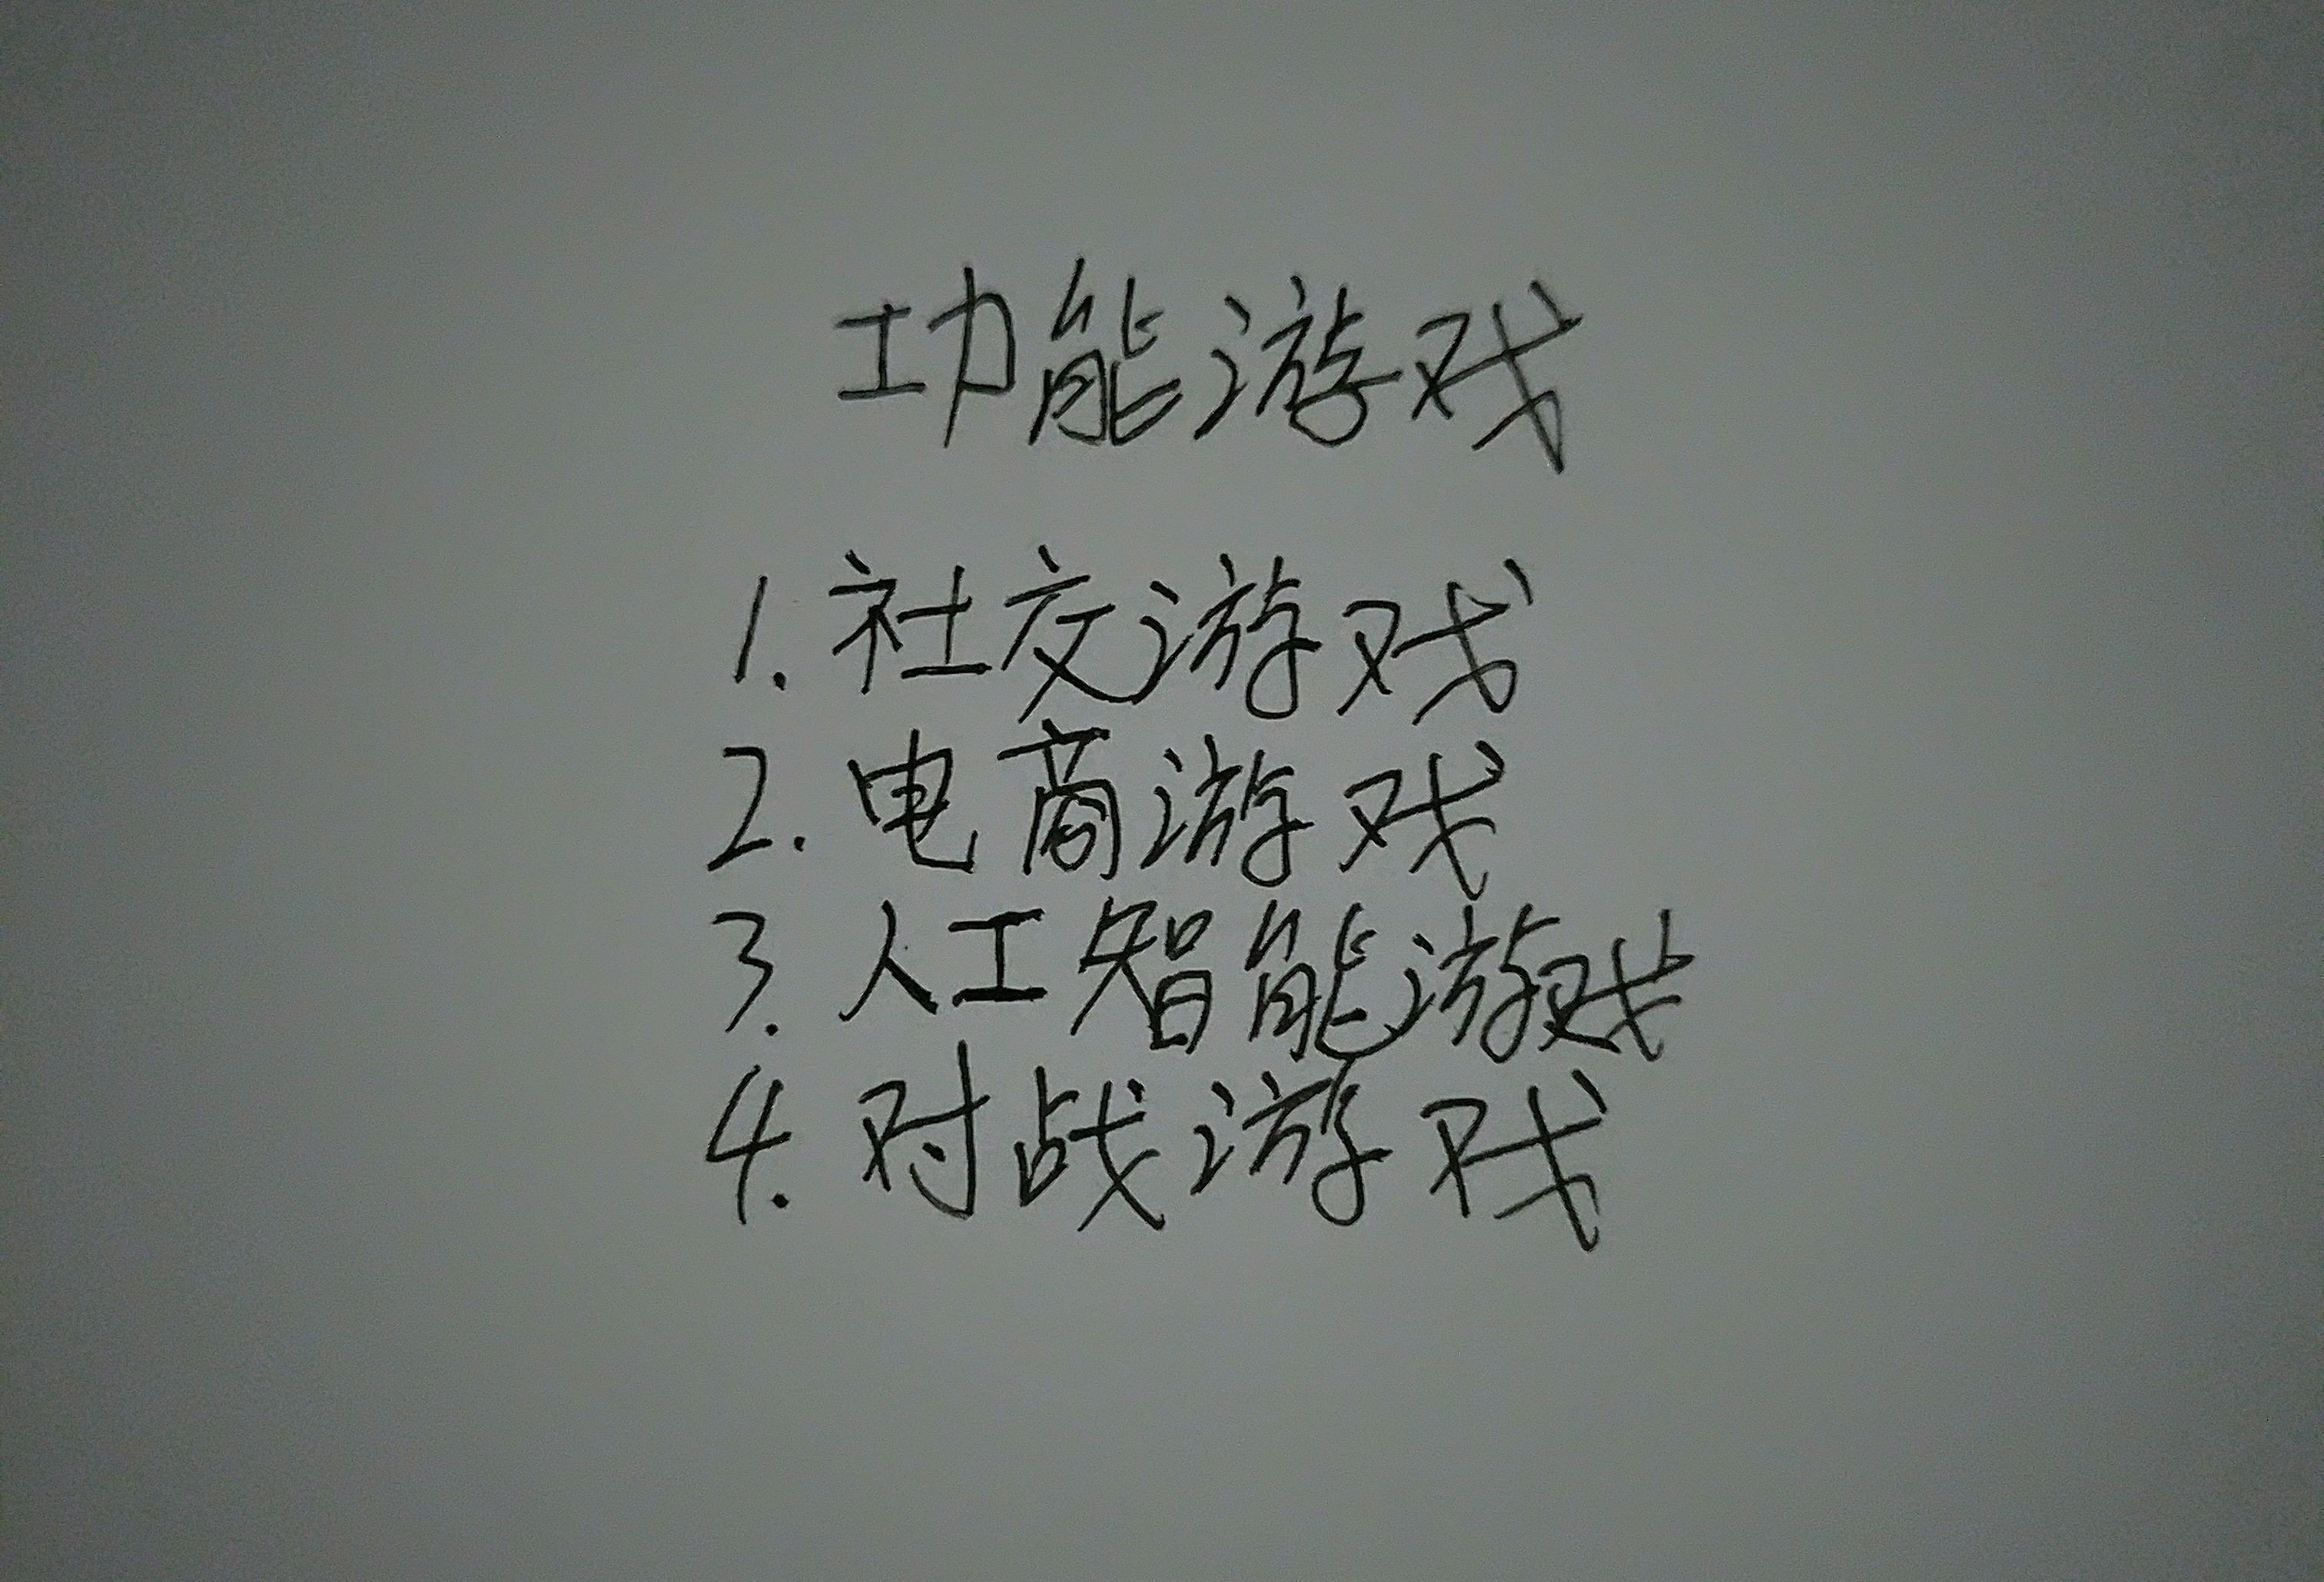 功能游戏
1. 社交游戏
2. 电商游戏
3. 人工智能游戏
4. 对战游戏